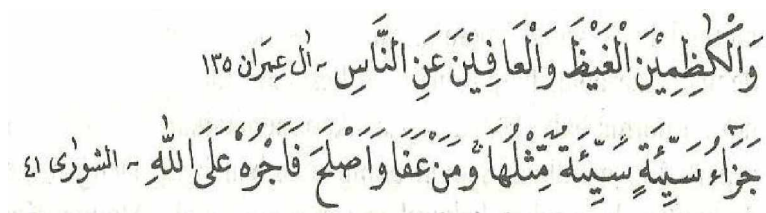 وَالْكٰظِمِيْنَ الْغَيْظَ وَالْعَافِيْنَ عَنِ النَّاسِ ـ اٰل عِمرَان ١٣٥
جَزَآءُ سَيِّئَةٍ سَيِّئَةٌ مِّثْلُهَا وَمَنْ عَفَا وَاَصْلَحَ فَاَجْرُهٗ عَلَى اللّٰهِ ـ الشورٰى ٤١